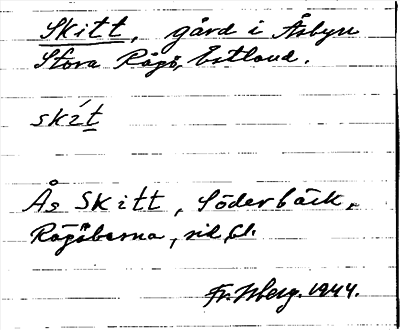 Skitt, gård i Åsbyn
Stora Rågö, Estland.
skit
Ås Skitt, Söderbäck,
Rågöborna, sid 61.
Fr. Isberg. 1944.